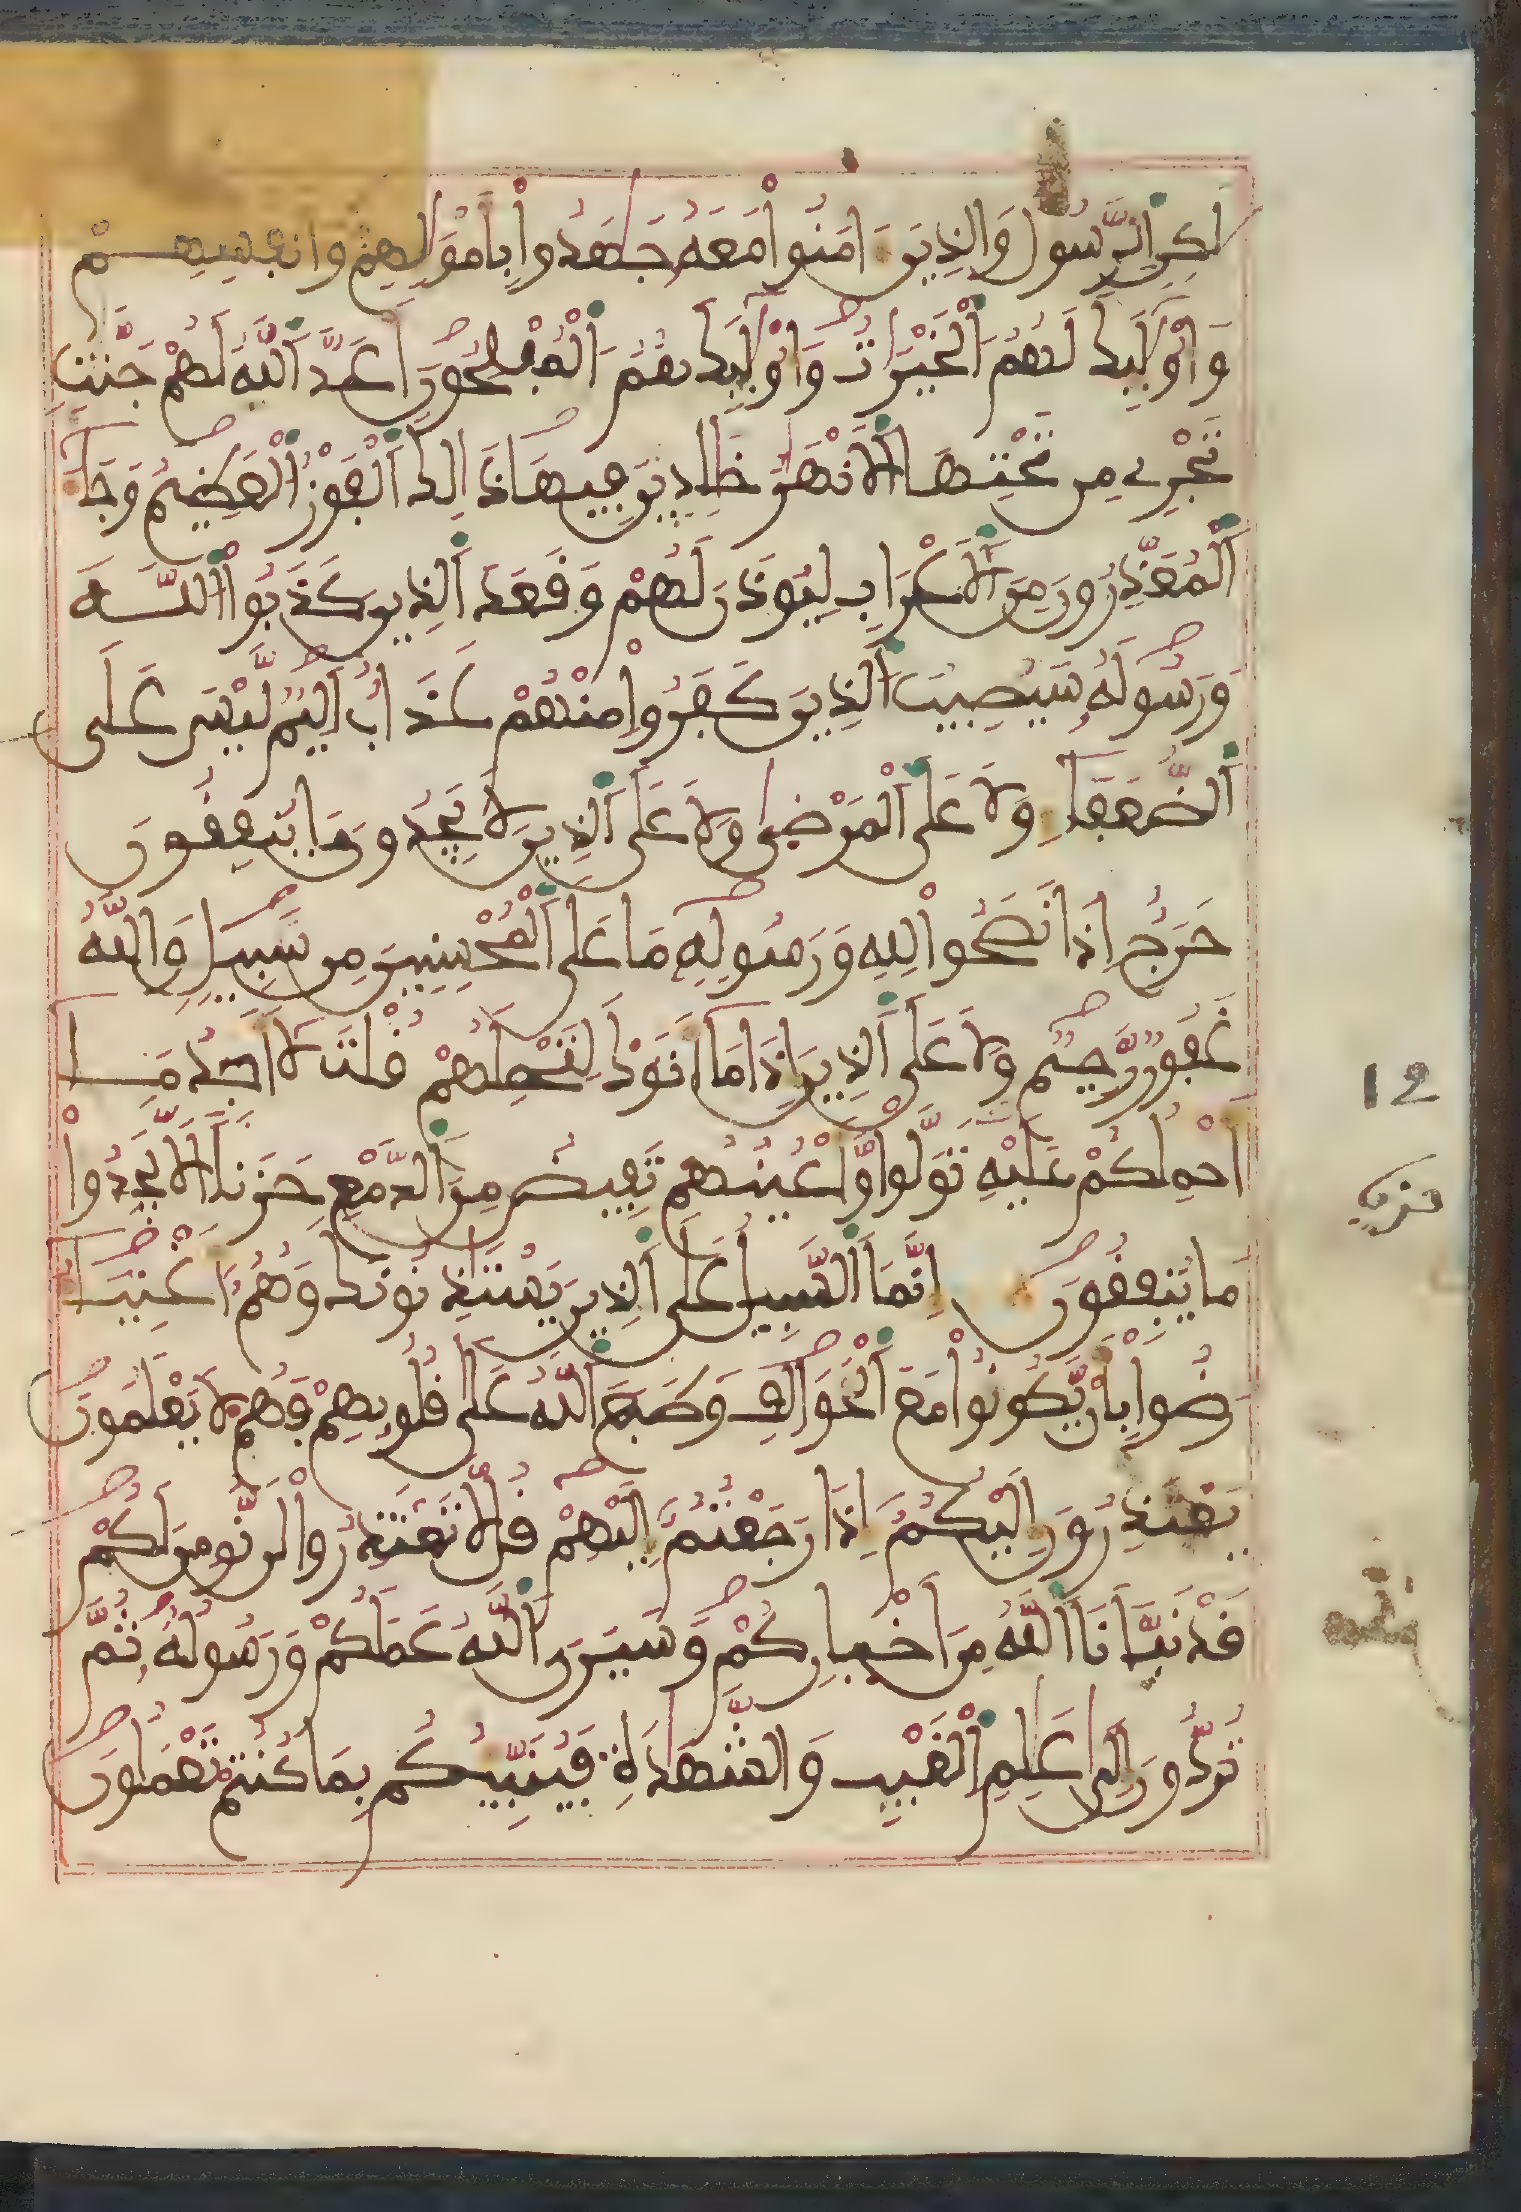 لَٰكِنِ اِ۬لرَّسُولُ وَالذِينَ ءَامَنُواْ مَعَهُۥ جَٰهَدُواْ بِأَمْوَٰلِهِمْ وَأَنفُسِهِمْ
وَأُوْلَٰٓئِكَ لَهُمُ اُ۬لْخَيْرَاتُ وَأُوْلَٰٓئِكَ هُمُ اُ۬لْمُفْلِحُونَ أَعَدَّ اَ۬للَّهُ لَهُمْ جَنَّٰتٖ
تَجْرِے مِن تَحْتِهَا اَ۬لَانْهَٰرُ خَٰلِدِينَ فِيهَا ذَٰلِكَ اَ۬لْفَوْزُ اُ۬لْعَظِيمُ وَجَآءَ
اَ۬لْمُعَذِّرُونَ مِنَ اَ۬لَاعْرَابِ لِيُوذَنَ لَهُمْ وَقَعَدَ اَ۬لذِينَ كَذَبُواْ اُ۬للَّهَ
وَرَسُولَهُۥ سَيُصِيبُ اُ۬لذِينَ كَفَرُواْ مِنْهُمْ عَذَابٌ اَلِيمٌ لَّيْسَ عَلَى
اَ۬لضُّعَفَآءِ وَلَا عَلَى اَ۬لْمَرْضَىٰ وَلَا عَلَى اَ۬لذِينَ لَا يَجِدُونَ مَا يُنفِقُونَ
حَرَجٌ اِذَا نَصَحُواْ لِلهِ وَرَسُولِهِۦ مَا عَلَى اَ۬لْمُحْسِنِينَ مِن سَبِيلٖ وَاللَّهُ
غَفُورٞ رَّحِيمٞ وَلَا عَلَى اَ۬لذِينَ إِذَا مَآ أَتَوْكَ لِتَحْمِلَهُمْ قُلْتَ لَآ أَجِدُ مَآ
أَحْمِلُكُمْ عَلَيْهِ تَوَلَّواْ وَّأَعْيُنُهُمْ تَفِيضُ مِنَ اَ۬لدَّمْعِ حَزَناً اَلَّا يَجِدُواْ
مَا يُنفِقُونَ إِنَّمَا اَ۬لسَّبِيلُ عَلَى اَ۬لذِينَ يَسْتَٰذِنُونَكَ وَهُمُۥٓ أَغْنِيَآءُ
رَضُواْ بِأَنْ يَّكُونُواْ مَعَ اَ۬لْخَوَالِفِ وَطَبَعَ اَ۬للَّهُ عَلَىٰ قُلُوبِهِمْ فَهُمْ لَا يَعْلَمُونَ
يَعْتَذِرُونَ إِلَيْكُمُۥٓ إِذَا رَجَعْتُمُۥٓ إِلَيْهِمْ قُل لَّا تَعْتَذِرُواْ لَن نُّومِنَ لَكُمْ
قَدْ نَبَّأَنَا اَ۬للَّهُ مِنَ اَخْبَارِكُمْ وَسَيَرَى اَ۬للَّهُ عَمَلَكُمْ وَرَسُولُهُۥ ثُمَّ
تُرَدُّونَ إِلَىٰ عَٰلِمِ اِ۬لْغَيْبِ وَالشَّهَٰدَةِ فَيُنَبِّئُكُم بِمَا كُنتُمْ تَعْمَلُونَ
12
حزب